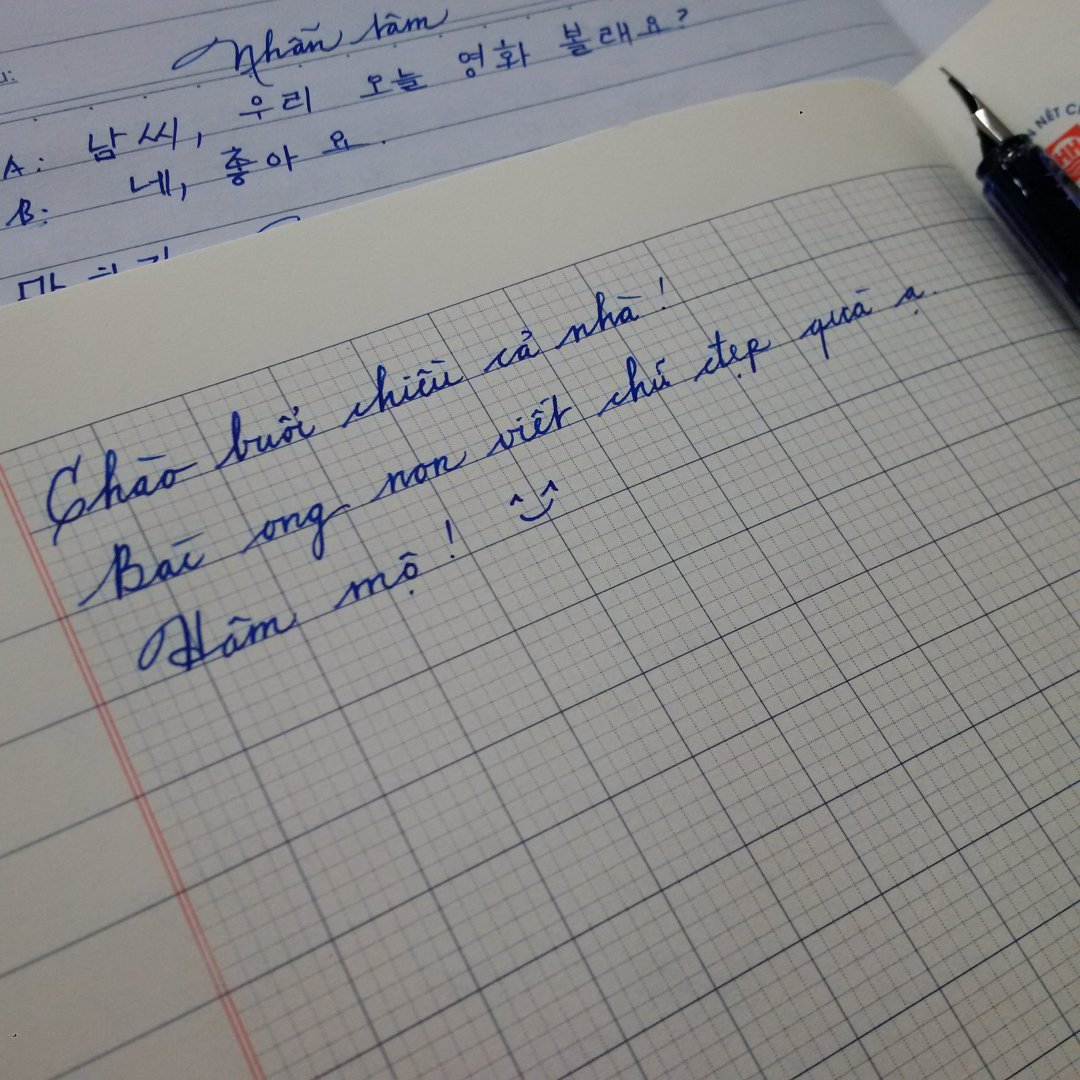 Nhẫn tâm
A: 남 씨, 우리 오늘 영화 볼래요?
B: 네, 좋아요.
NÉT C
HH
Chào buổi chiều cả nhà!
Bác ong non viết chữ đẹp quá ạ.
Hâm mộ!